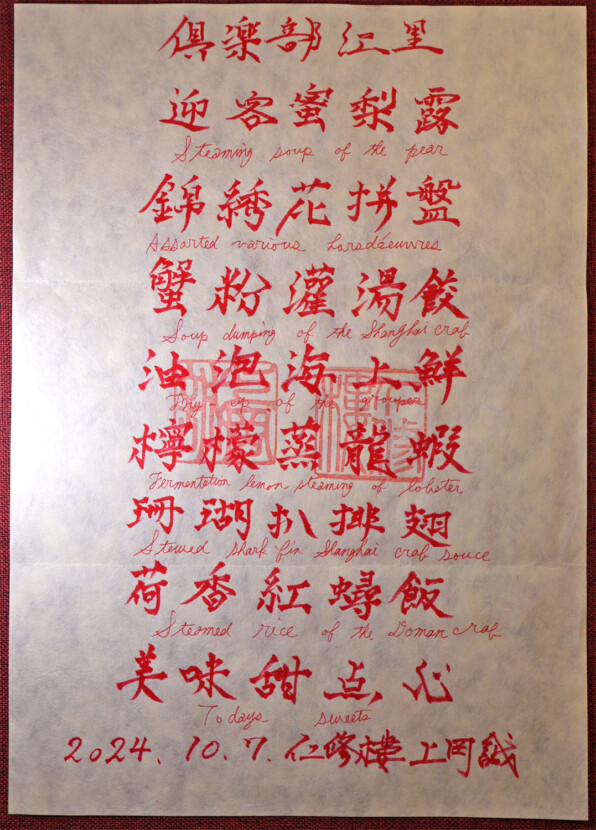 倶楽部 江里
迎客蜜梨露
Steaming soup of the pear
錦綉花拼盤
Assorted various horsdéeuvres
蟹粉灌湯餃
Soup dumping of the Shanghai crab
油泡海上鮮
Fry-up of the grouper
檸檬蒸龍蝦
Fermentation lemon steaming of lobster
珊瑚扒排翅
Stewed shark fin Shanghai crab souce
荷香紅蟳飯
Steamed rice of the Doman crab
美味甜点心
Todays sweets
2024.10.7.仁修樓上岡誠